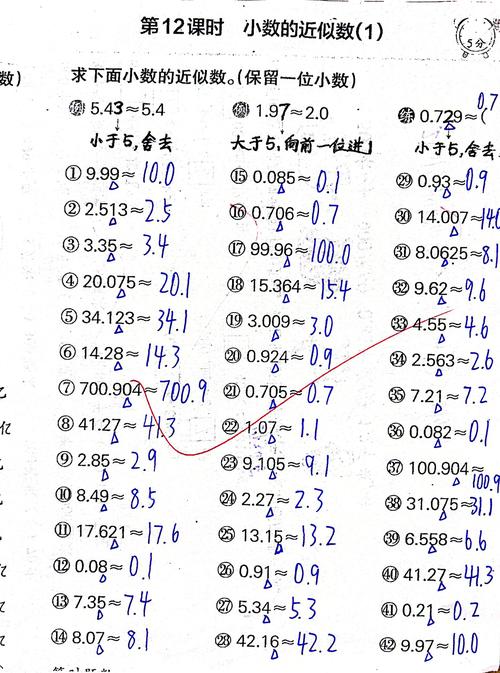 第12课时 小数的近似数(1)
5分
数)
求下面小数的近似数。(保留一位小数)
例 5.43≈5.4
小于5,舍去
例 1.97≈2.0
大于5,向前一位进1
练 0.729≈( 0.7
小于5,舍去
① 9.99≈10.0
② 2.513≈2.5
③ 3.35≈3.4
④ 20.075≈20.1
⑤ 34.123≈34.1
⑥ 14.28≈14.3
⑦ 700.904≈700.9
⑧ 41.27≈41.3
⑨ 2.85≈2.9
⑩ 8.49≈8.5
⑪ 17.621≈17.6
⑫ 0.08≈0.1
⑬ 7.35≈7.4
⑭ 8.07≈8.1
⑮ 0.085≈0.1
⑯ 0.706≈0.7
⑰ 99.96≈100.0
⑱ 15.364≈15.4
⑲ 3.009≈3.0
⑳ 0.924≈0.9
㉑ 0.705≈0.7
㉒ 1.07≈1.1
㉓ 9.105≈9.1
㉔ 2.27≈2.3
㉕ 13.15≈13.2
㉖ 0.91≈0.9
㉗ 5.34≈5.3
㉘ 42.16≈42.2
㉙ 0.93≈0.9
㉚ 14.007≈14.0
㉛ 8.0625≈8.1
㉜ 9.62≈9.6
㉝ 4.55≈4.6
㉞ 2.563≈2.6
㉟ 7.21≈7.2
㊱ 0.082≈0.1
㊲ 100.904≈100.9
㊳ 31.075≈31.1
㊴ 6.558≈6.6
㊵ 41.27≈41.3
㊶ 0.21≈0.2
㊷ 9.97≈10.0